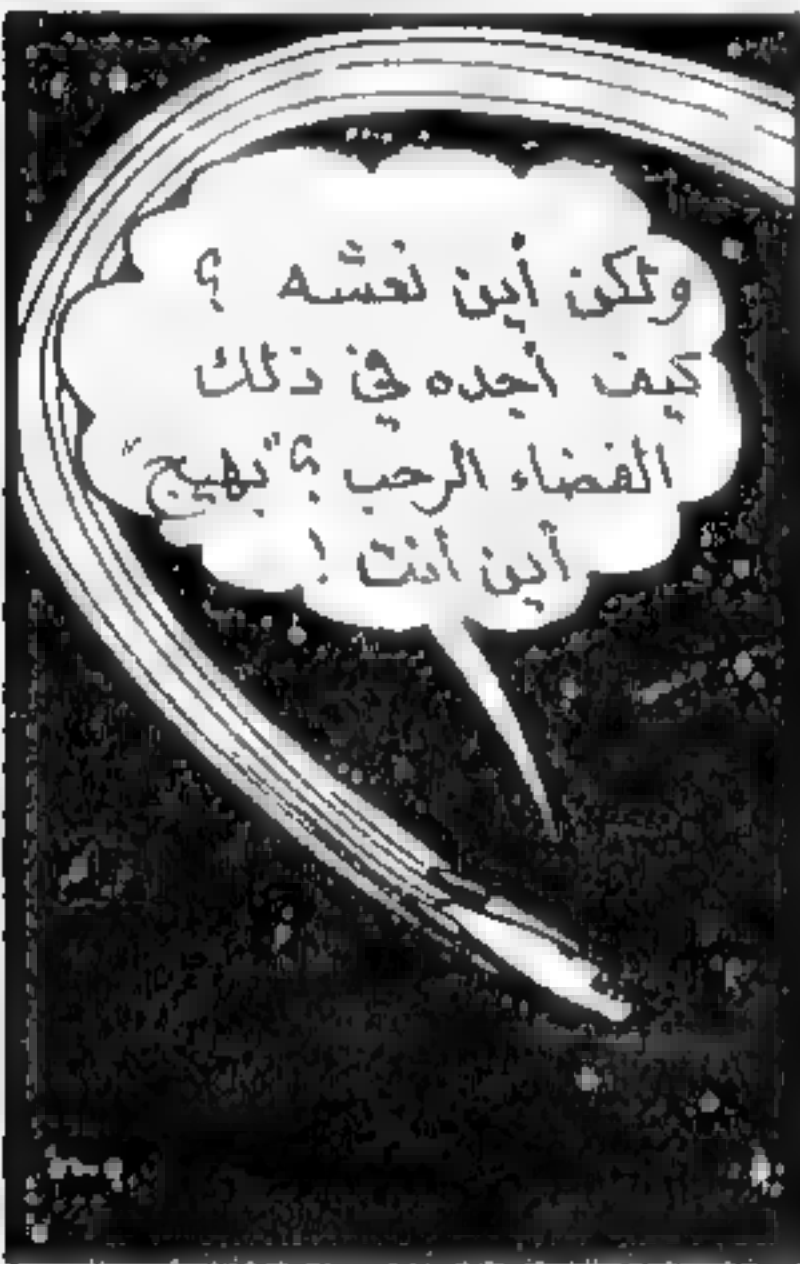 ولكن أين نعشه ؟
كيف أجده في ذلك
الفضاء الرحب ؟ "بهيج"
أين أنت !